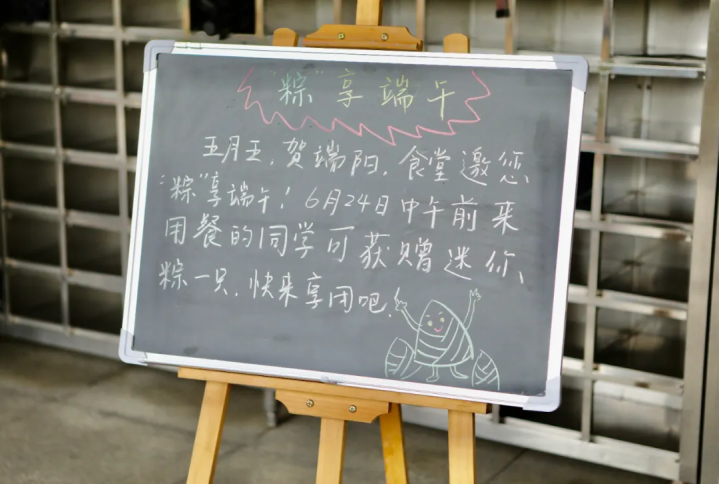 "粽"享端午
五月五,贺端阳,食堂邀您、
"粽"享端午!6月24日中午前来
用餐的同学可获赠迷你
粽一只,快来享用吧!